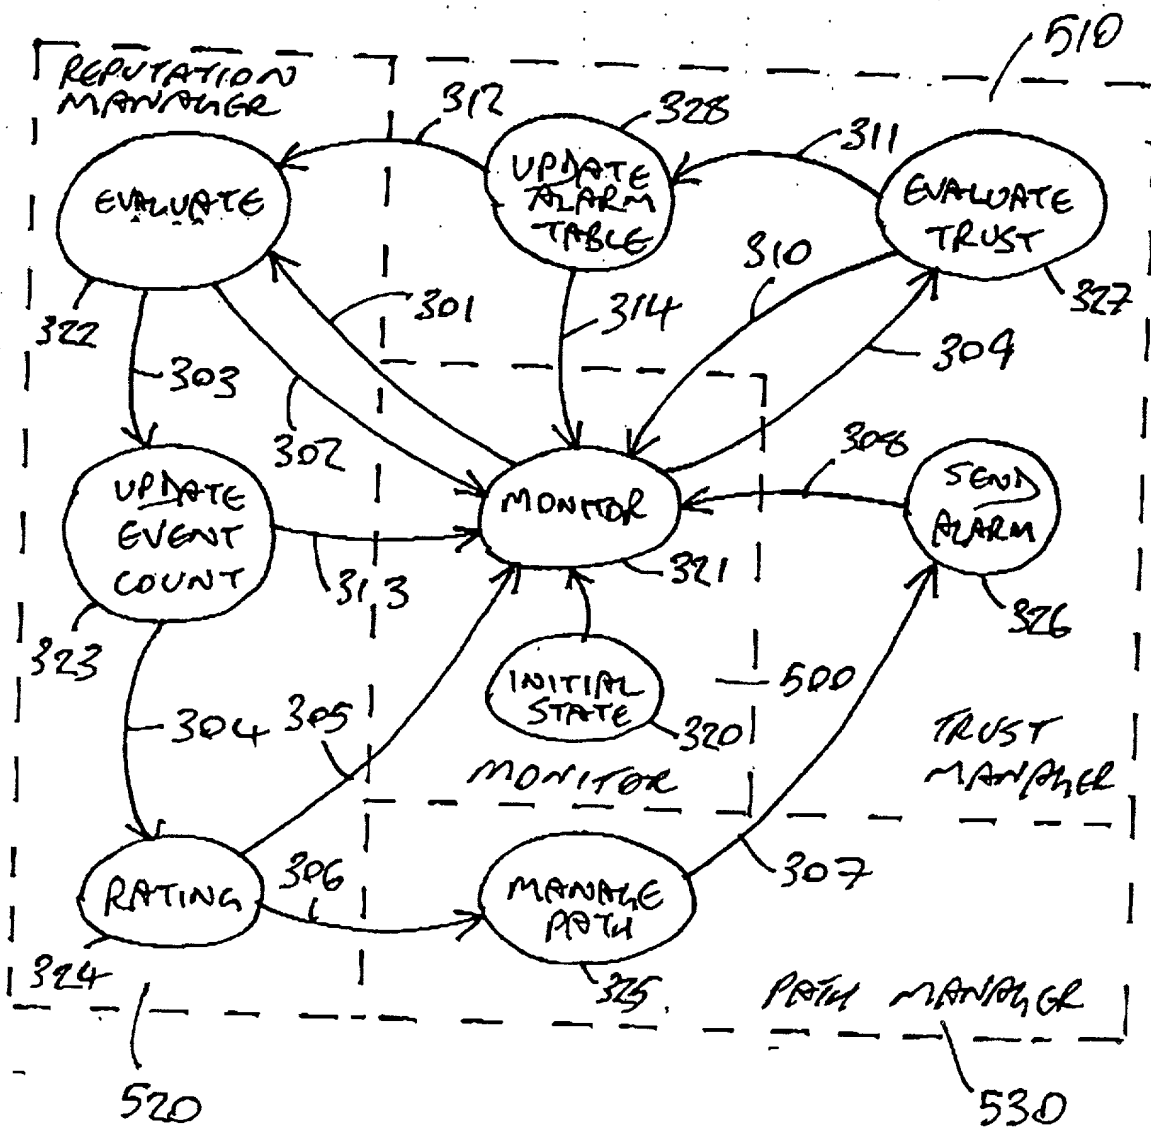 510
REPUTATION
MANAGER
312
328
311
EVALUATE
UPDATE
ALARM
TABLE
EVALUATE
TRUST
310
327
322
301
314
309
303
302
308
UPDATE
EVENT
COUNT
MONITOR
SEND
ALARM
321
313
326
323
INITIAL
STATE
500
304
305
320
TRUST
MANAGER
MONITOR
307
RATING
306
MANAGE
PATH
324
325
PATH MANAGER
520
530